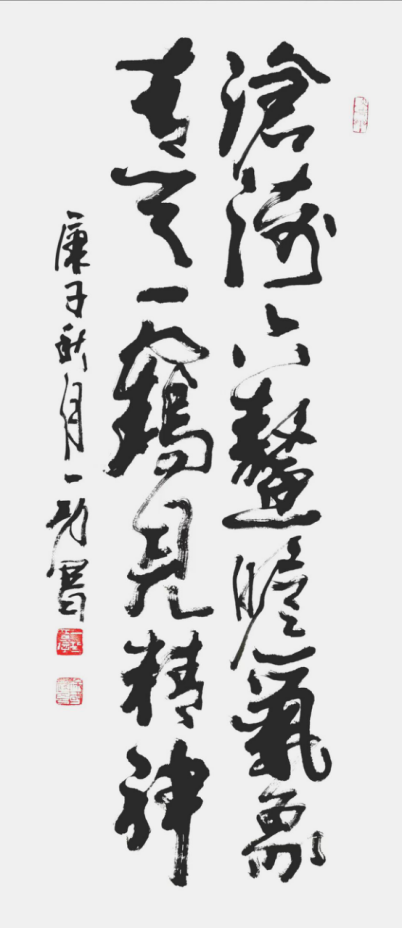 滄海六鰲瞻氣象
青天一鶴見精神
庚子秋月一書